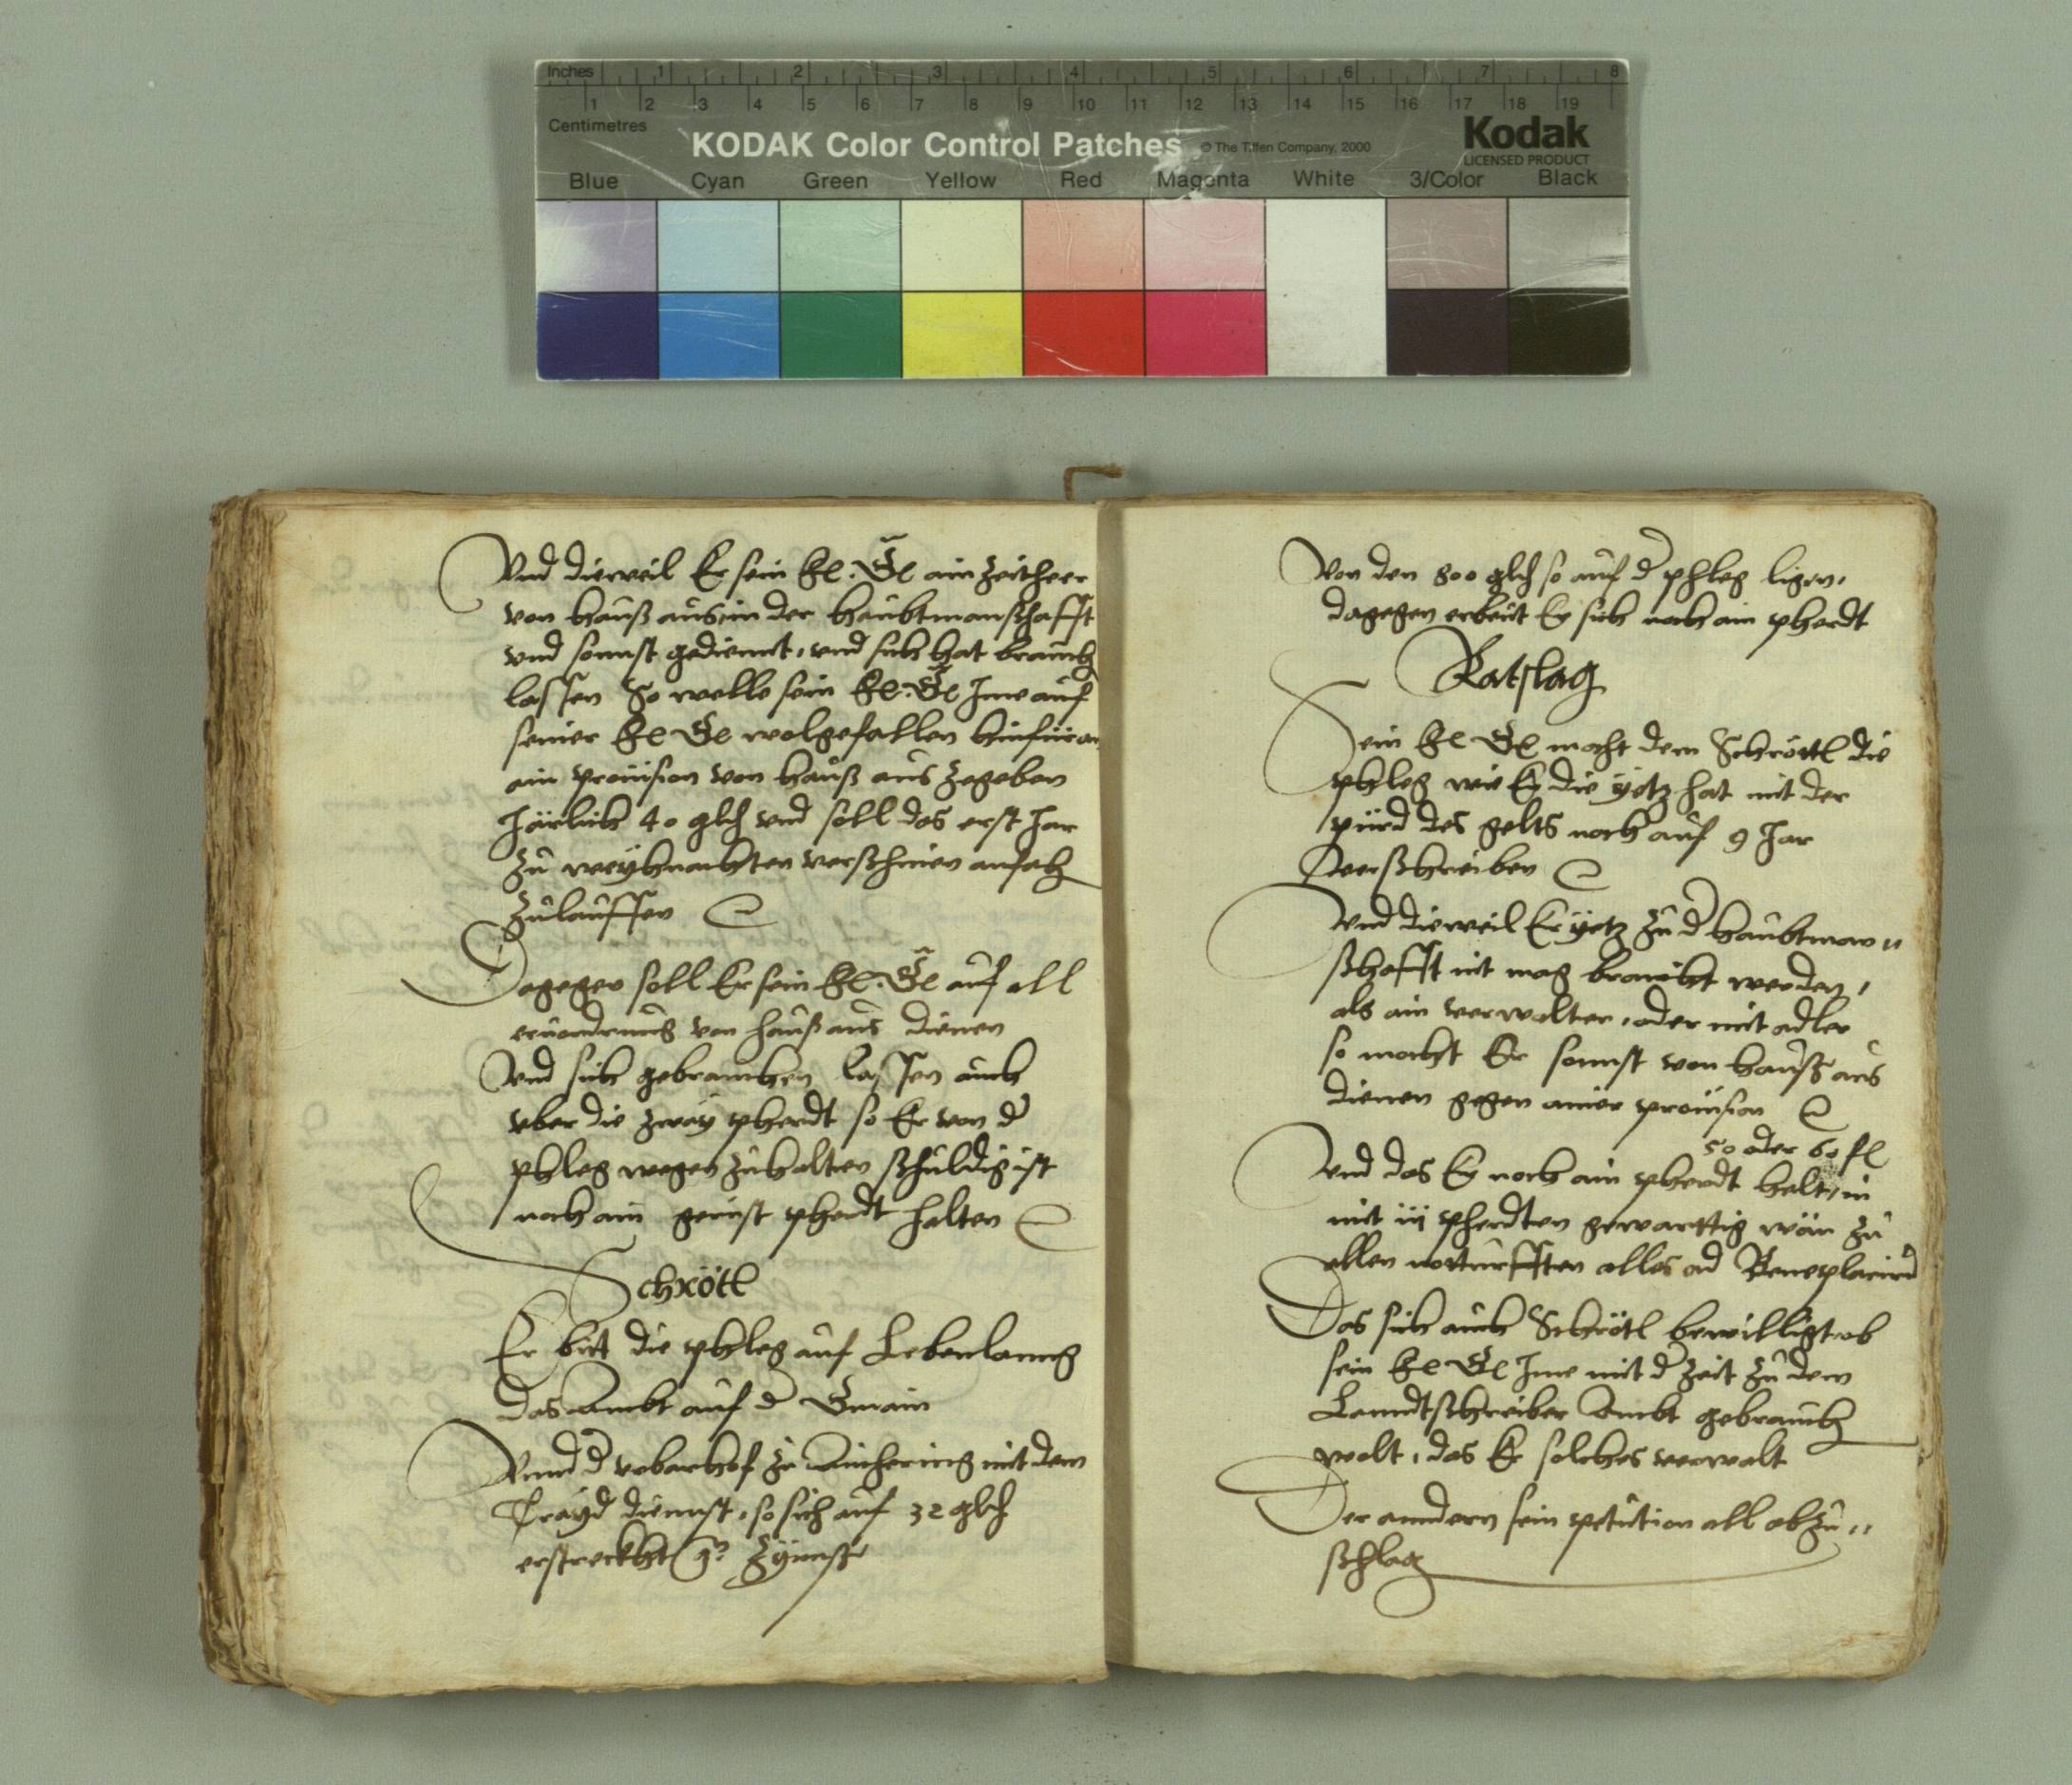 Inches 1 2 3 4 5 6 7 8
1 2 3 4 5 6 7 8 9 10 11 12 13 14 15 16 17 18 19
Centimetres
KODAK Color Control Patches © The Tiffen Company, 2000 Kodak
LICENSED PRODUCT
Blue Cyan Green Yellow Red Magenta White 3/Color Black
Vnd dieweil Er sein fl. Gl ain Zeitheer
von hauß aus in der haubtmanschafft
vnd sonnst gediennt, vnd sich hat brauch
lassen So welle sein fl. Gl Ime auf
seiner fl Gl wolgefallen hinfüran
ain prouision von hauß aus zegeben
Järlich 40 glch vnd soll das erst Jar
zu weyhnachten verschinen anfach
zulauffen
Dagegen soll Er sein fl. Gl auf all
eruordrung von hauß aus dienen
Vnd sich gebrauchen lassen auch
vber die zway pherdt so Er von d
phleg wegen zuhalten schuldig ist
noch ain gerüst pherdt halten
Schrötl
Er bitt die phleg auf Lebenlanng
Das Ambt auf d Gmain
Vnnd d vrbarhof ze Ainhering mit dem
Trayd diennst, so sich auf 32 glch
erstreckht Zynnst
Von den 800 glch so auf d phleg ligen,
dagegen erbeut Er sich noch ain pherdt
Ratslag
Sein fl Gl mocht dem Schröttl die
phleg wie Er die yetz hat mit der
pürd des gelts noch auf 9 Jar
verschreiben
Vnd dieweil Er yetz zu d haubtman"
schafft nit mag braucht werden,
als ain verwalter, oder mit adler
so mocht Er sonnst von hauß aus
dienen gegen ainer prouision
50 oder 60 fl
Vnd das Er noch ain pherdt helt, in
mit iij pherdten gewarttig wär zu
allen notturfften alles ad
Das sich auch Schrötl bewilligt, ob
sein fl Gl Ime mit d Zeit zu dem
Lanndtschreiber Ambt gebrauch
wolt, das Er solches verwalt
Der anndern sein petition all abzu"
schlag